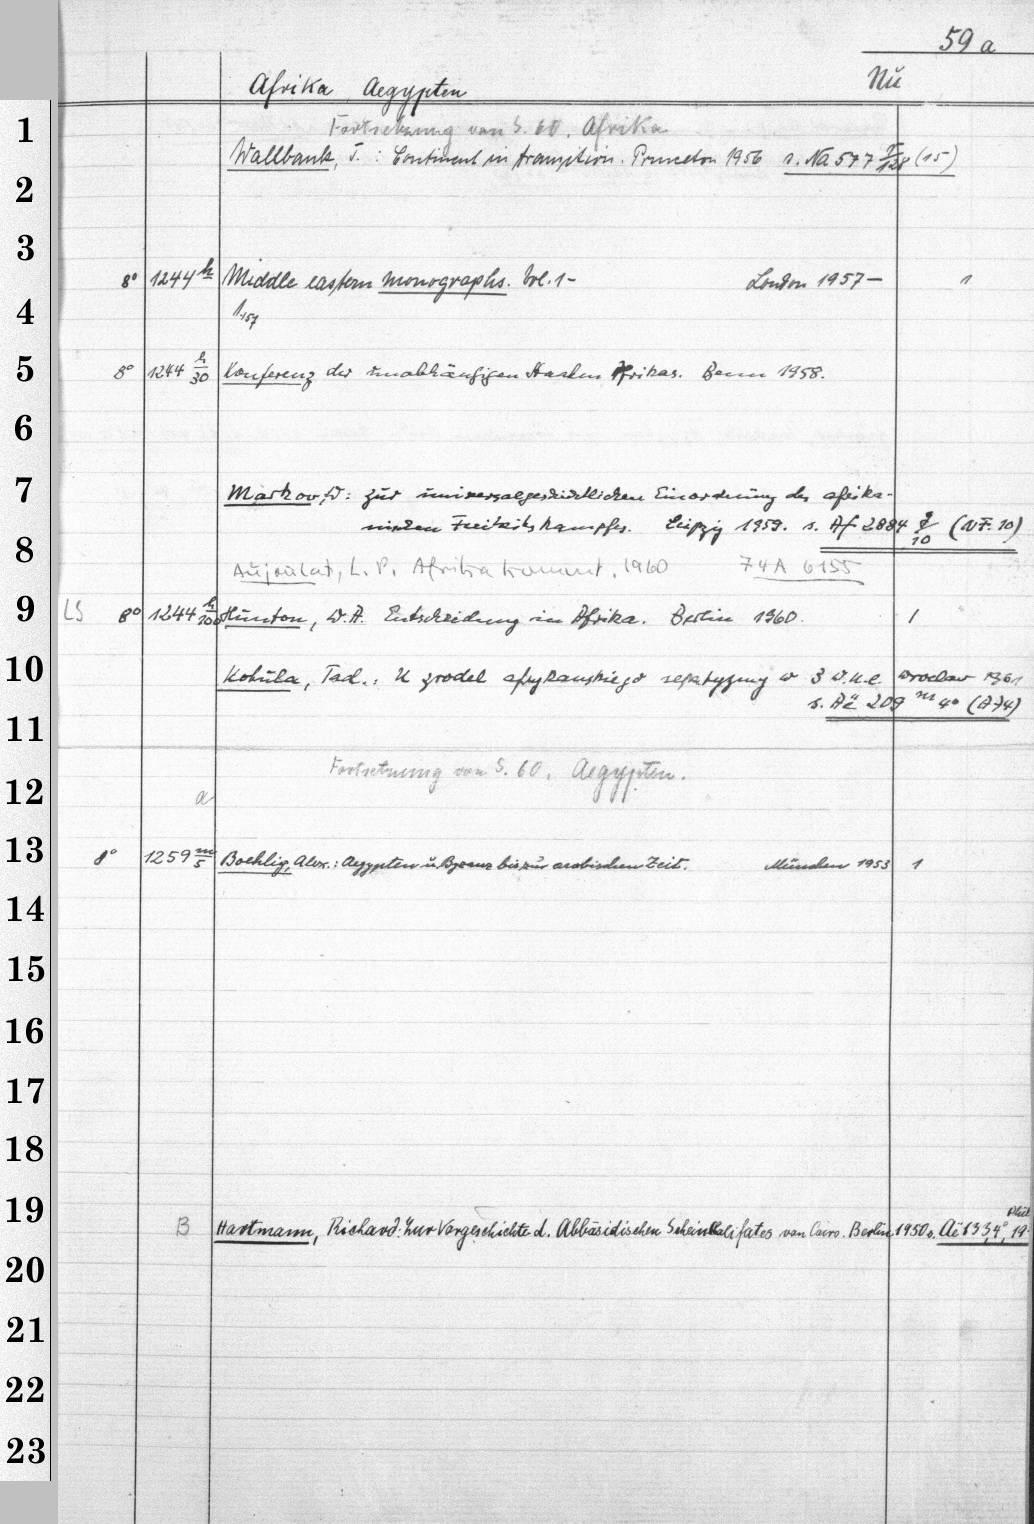 59a
Nü
Afrika Aegypten
Fortsetzung von S. 60. Afrika
1
Wallbank, T.: Continent in transition. Princeton 1956 s. Na 577 T/128 (15)
2
3
8° 1244 h Middle eastern monographs. Vol. 1- London 1957- 1
4
1.157
5
8° 1244 h/30 Konferenz der unabhängigen Staaten Afrikas. Bonn 1958.
6
7
Markov, W: zur universalgeschichtlichen Einordnung des afrika-
nischen Freiheitskampfes. Leipzig 1959. s. Af 2884 /10 (NF. 10)
8
Aujoulat, L.P. Afrika kommt. 1960 74 A 6155
9
LS 8° 1244 h/100 Hunton, W.A. Entscheidung in Afrika. Berlin 1960. 1
10
Kobula, Tad.: U zrodel afrykanskiego w 3 w.n.e Wroclaw 1961
s. Aë 209 m 4° (A74)
11
Fortsetzung von S. 60. Aegypten.
12
a
13
8° 1259 m/5 Boehlig, Alex.: Aegypten u. Byzanz bis zur arabischen Zeit. München 1953 1
14
15
16
17
18
19
B Hartmann, Richard: Zur Vorgeschichte d. Abbäsidischen Scheinkalifates von Cairo. Berlin 1950 s. Aë 133, 4°, 19
20
21
22
23